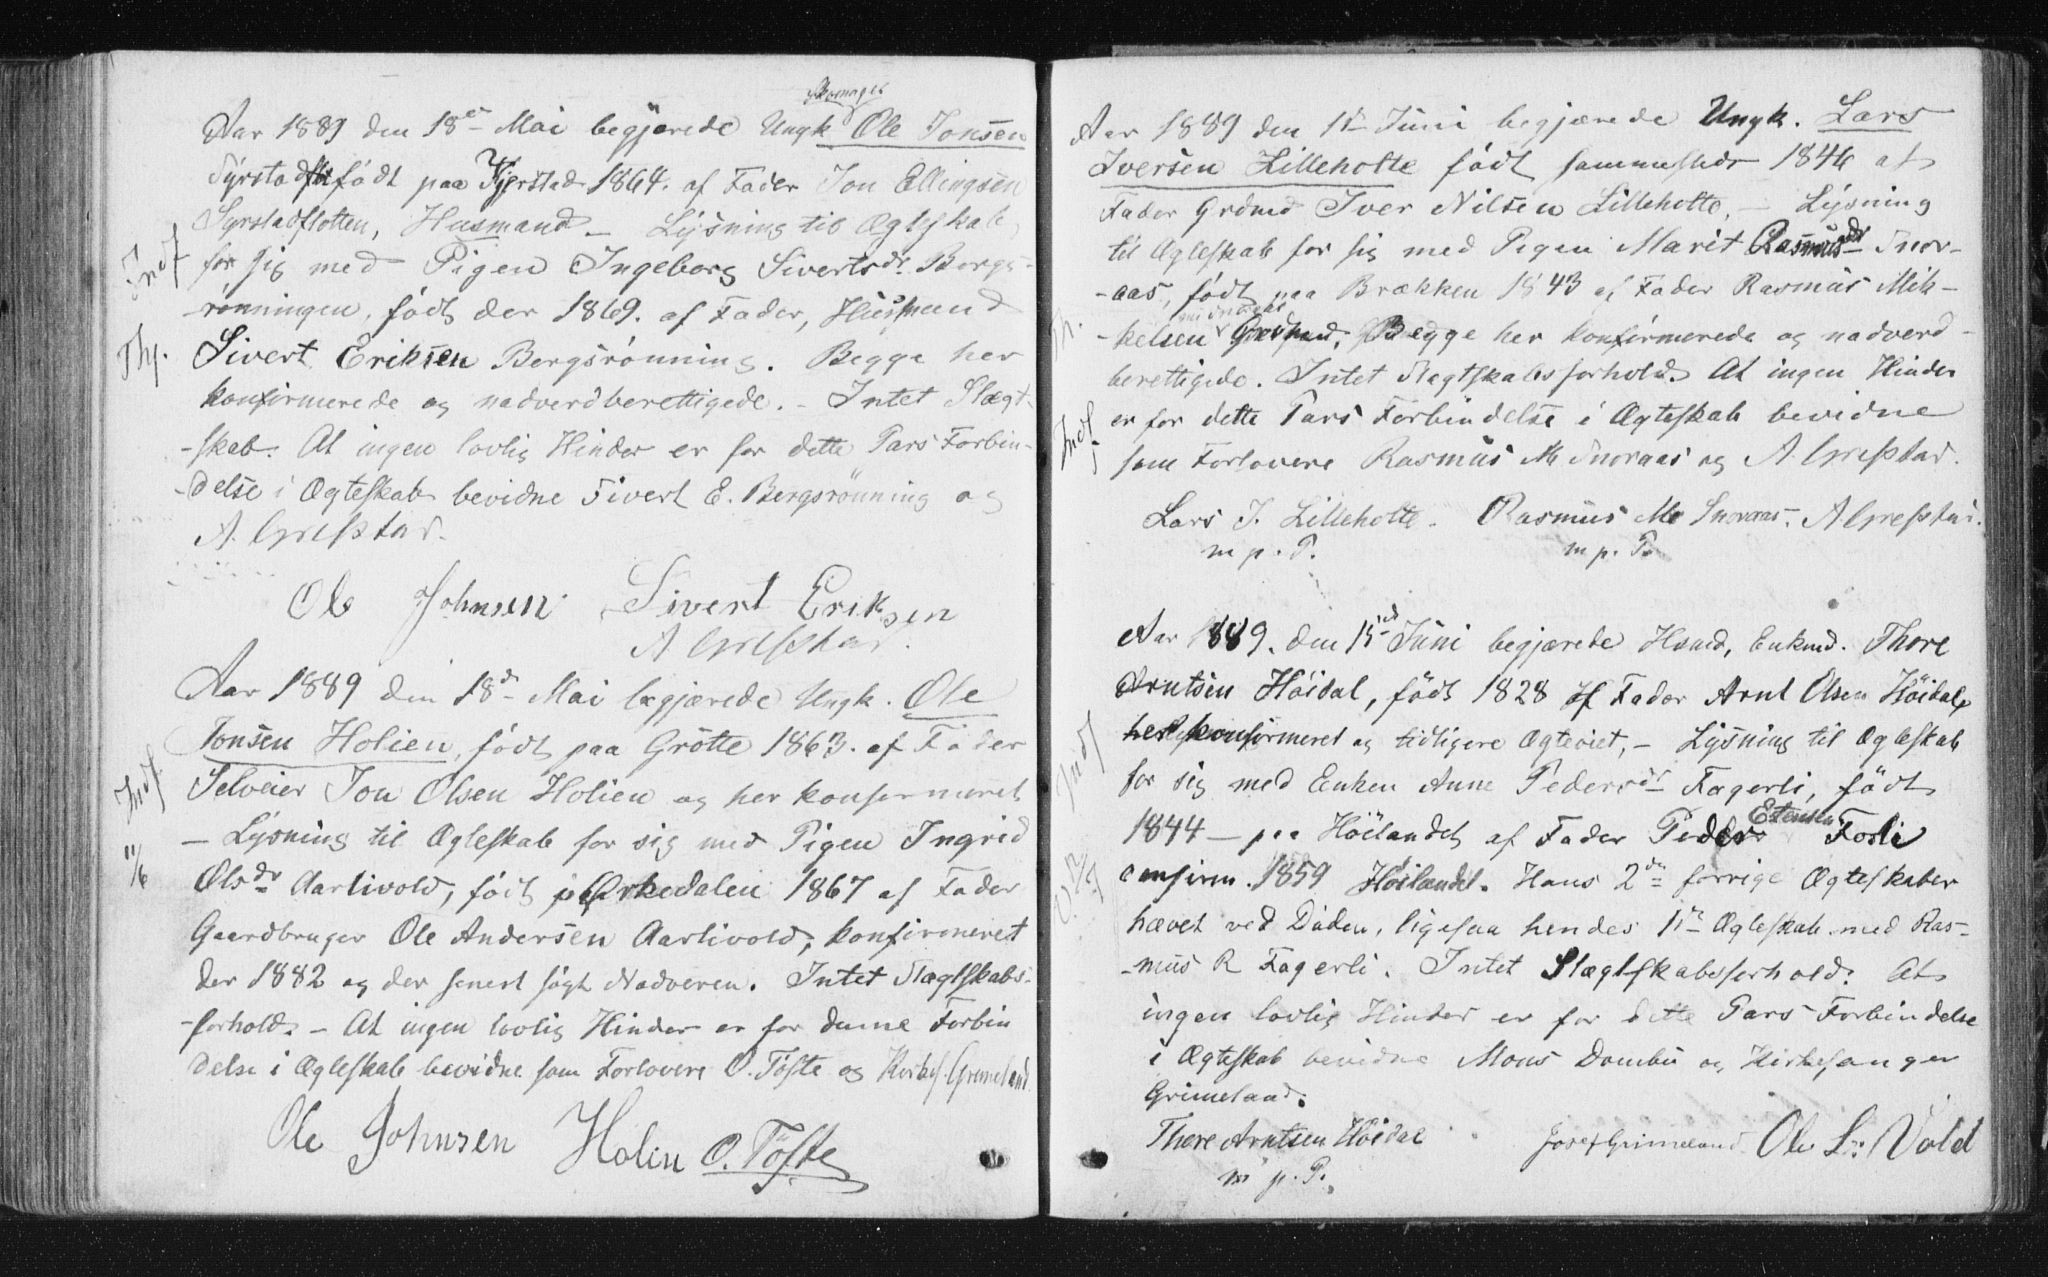 Skomager
Aar 1889 den 18de Mai begjærede Ungk Ole Jonsen
født paa Kjerstad 1864. af Fader Jon Ellingsen
Syrstadflotten, Husmand – Lysning til Ægteskab
for sig med Pigen Ingeborg Sivertsdr. Bergs-
-rønningen, født der 1869. af Fader, Husmand
Sivert Eriksen Bergsrønning. Begge her
konfirmerede og nadverdberettigede. – Intet Slægt-
-skab. At ingen lovlig Hinder er for dette Pars Forbin-
-delse i Ægteskab bevidne Sivert E. Bergsrønning og
A. Grefstad.
Ole Johnsen Sivert Eriksen
A Grefstad.
Aar 1889 den 18de Mai begjærede Ungk. Ole
Jonsen Holien, født paa Grötte 1863. af Fader
Selveier Jon Olsen Holien og her konfirmeret
– Lysning til Ægteskab for sig med Pigen Ingrid
Olsdr Aarlivold, født i Orkedalen 1867 af Fader
Gaardbruger Ole Andersen Aarlivold, konfirmeret
der 1882 og der senest søgt Nadveren. Intet Slægtskabs-
-forhold. – At ingen lovlig Hinder er for denne Forbin
delse i Ægteskab bevidne som Forlovere O. Töfte og Kirkes. Grimeland
Ole Johnsen Holin O. Töfte
Indf
Thj.
Indf.
11/6
Aar 1889 den 1ste Juni begjærede Ungk. Lars
Iversen Lilleholte født sammesteds 1846 af
Fader Grdmd Iver Nilsen Lilleholte, – Lysning
til Ægteskab for sig med Pigen Marit Rasmusdr Snor-
-aas, født paa Brækken 1843 af Fader Rasmus Mik-
-kelsen Begge her konfirmerede og nadverd-
berettigede. Intet Slægtskabsforhold. At ingen Hinder
er for dette Pars Forbindelse i Ægteskab bevidne
som Forlovere Rasmus M Snoraas og A. Grefstad.
Lars I. Lilleholte. Rasmus M Snoraas. A Grefstad.
m p. P. m p. P.
Aar 1889. den 15de Juni begjærede Hsmd, Enkmd. Thore
Arntsen Höidal, født 1828 af Fader Arnt Olsen Höidal,
her konfirmeret og tidligere Ægteviet, – Lysning til Ægteskab
for sig med Enken Anne Pedersdr Fagerli, født
1844 – paa Höilandet af Fader Peder Estensen Fosli
confirm. 1859 Höilandet. Hans 2de forrige Ægteskaber
hævet ved Döden, ligesaa hendes 1ste Ægteskab med Ras-
-mus R Fagerli. Intet Slægtskabsforhold. At
ingen lovlig Hinder er for dette Pars Forbindelse
i Ægteskab bevidne Mons Dombu og Kirkesanger
Grimeland.
Thore Arntsen Höidal Josef Grimeland. Ole L. Vold
m p. P.
Indf
Indf